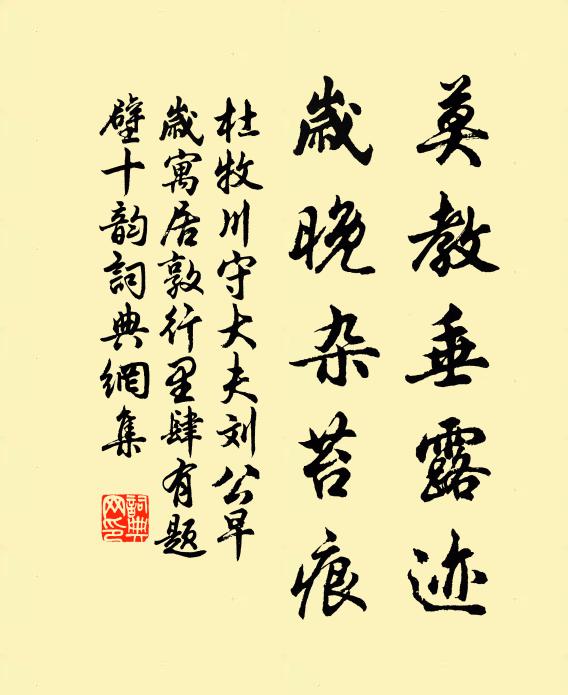 莫教垂露迹
歳晚杂苔痕
杜牧川守大夫刘公早
歳寓居敦行里肆有题
壁十韵词典網集
詞典
网印